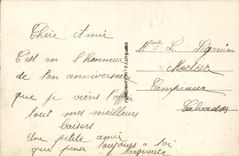 Chère Amie
C'est en l'honneur
de ton anniversaire
que je viens t'offrir
tout mes meilleurs
baisers
Une petite amie
que pense toujours à toi
Marguerite
Mme L.
Campeaux
Calvados